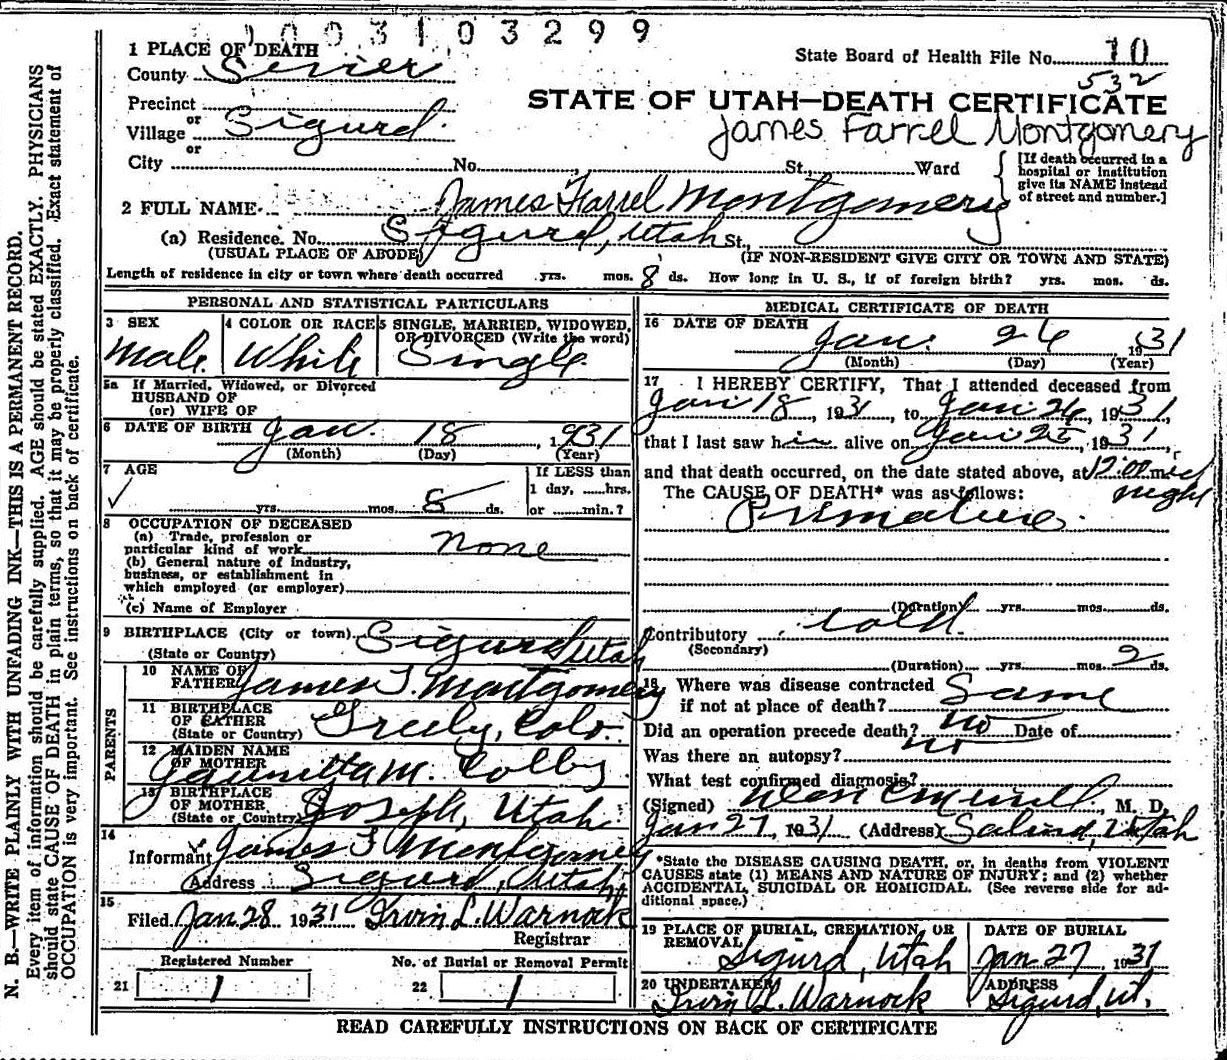 10031 03299
1 PLACE OF DEATH
State Board of Health File No. 10
County Sevier
532
Precinct
STATE OF UTAH—DEATH CERTIFICATE
or
Village Sigurd.
James Farrel Montgomery
or
City No. St., Ward
[If death occurred in a hospital or institution give its NAME instead of street and number.]
2 FULL NAME James Farrel Montgomery
(a) Residence. No. Sigurd, Utah St.,
(USUAL PLACE OF ABODE) (IF NON-RESIDENT GIVE CITY OR TOWN AND STATE)
Length of residence in city or town where death occurred yrs. mos. 8 ds. How long in U. S., if of foreign birth? yrs. mos. ds.
PERSONAL AND STATISTICAL PARTICULARS
3 SEX
Male
4 COLOR OR RACE
White
5 SINGLE, MARRIED, WIDOWED,
OR DIVORCED (Write the word)
Single
5a If Married, Widowed, or Divorced
HUSBAND OF
(or) WIFE OF
6 DATE OF BIRTH Jan. 18, 1931
(Month) (Day) (Year)
7 AGE
yrs. mos. 8 ds.
If LESS than
1 day, hrs.
or min.?
8 OCCUPATION OF DECEASED
(a) Trade, profession or
particular kind of work none
(b) General nature of industry,
business, or establishment in
which employed (or employer)
(c) Name of Employer
9 BIRTHPLACE (City or town) Sigurd Utah
(State or Country)
PARENTS
10 NAME OF
FATHER James F. Montgomery
11 BIRTHPLACE
OF FATHER Greely, Colo.
(State or Country)
12 MAIDEN NAME
OF MOTHER M. Colby
13 BIRTHPLACE
OF MOTHER Joseph, Utah
(State or Country)
14
Informant James F Montgomery
Address Sigurd, Utah
15
Filed Jan 28 1931 Irvin L. Warnock
Registrar
Registered Number
21 1
No. of Burial or Removal Permit
22 1
MEDICAL CERTIFICATE OF DEATH
16 DATE OF DEATH
Jan. 26 1931
(Month) (Day) (Year)
17 I HEREBY CERTIFY, That I attended deceased from
Jan 18, 1931, to Jan 26, 1931,
that I last saw him alive on Jan 25, 1931,
and that death occurred, on the date stated above, at 12:00 mid
night
The CAUSE OF DEATH* was as follows:
Premature
(Duration) yrs. mos. ds.
Contributory Cold.
(Secondary)
(Duration) yrs. mos. 2 ds.
18 Where was disease contracted
if not at place of death? Same
Did an operation precede death? no Date of
Was there an autopsy? no
What test confirmed diagnosis?
(Signed) M. D.
Jan 27, 1931 (Address) Salina, Utah
*State the DISEASE CAUSING DEATH, or, in deaths from VIOLENT
CAUSES state (1) MEANS AND NATURE OF INJURY; and (2) whether
ACCIDENTAL, SUICIDAL OR HOMICIDAL. (See reverse side for ad-
ditional space.)
19 PLACE OF BURIAL, CREMATION, OR
REMOVAL
Sigurd, Utah
DATE OF BURIAL
Jan 27 1931
20 UNDERTAKER
Irvin L. Warnock
ADDRESS
Sigurd, Ut.
READ CAREFULLY INSTRUCTIONS ON BACK OF CERTIFICATE
N. B.—WRITE PLAINLY WITH UNFADING INK—THIS IS A PERMANENT RECORD.
Every item of information should be carefully supplied. AGE should be stated EXACTLY. PHYSICIANS
should state CAUSE OF DEATH in plain terms, so that it may be properly classified. Exact statement of
OCCUPATION is very important. See instructions on back of certificate.